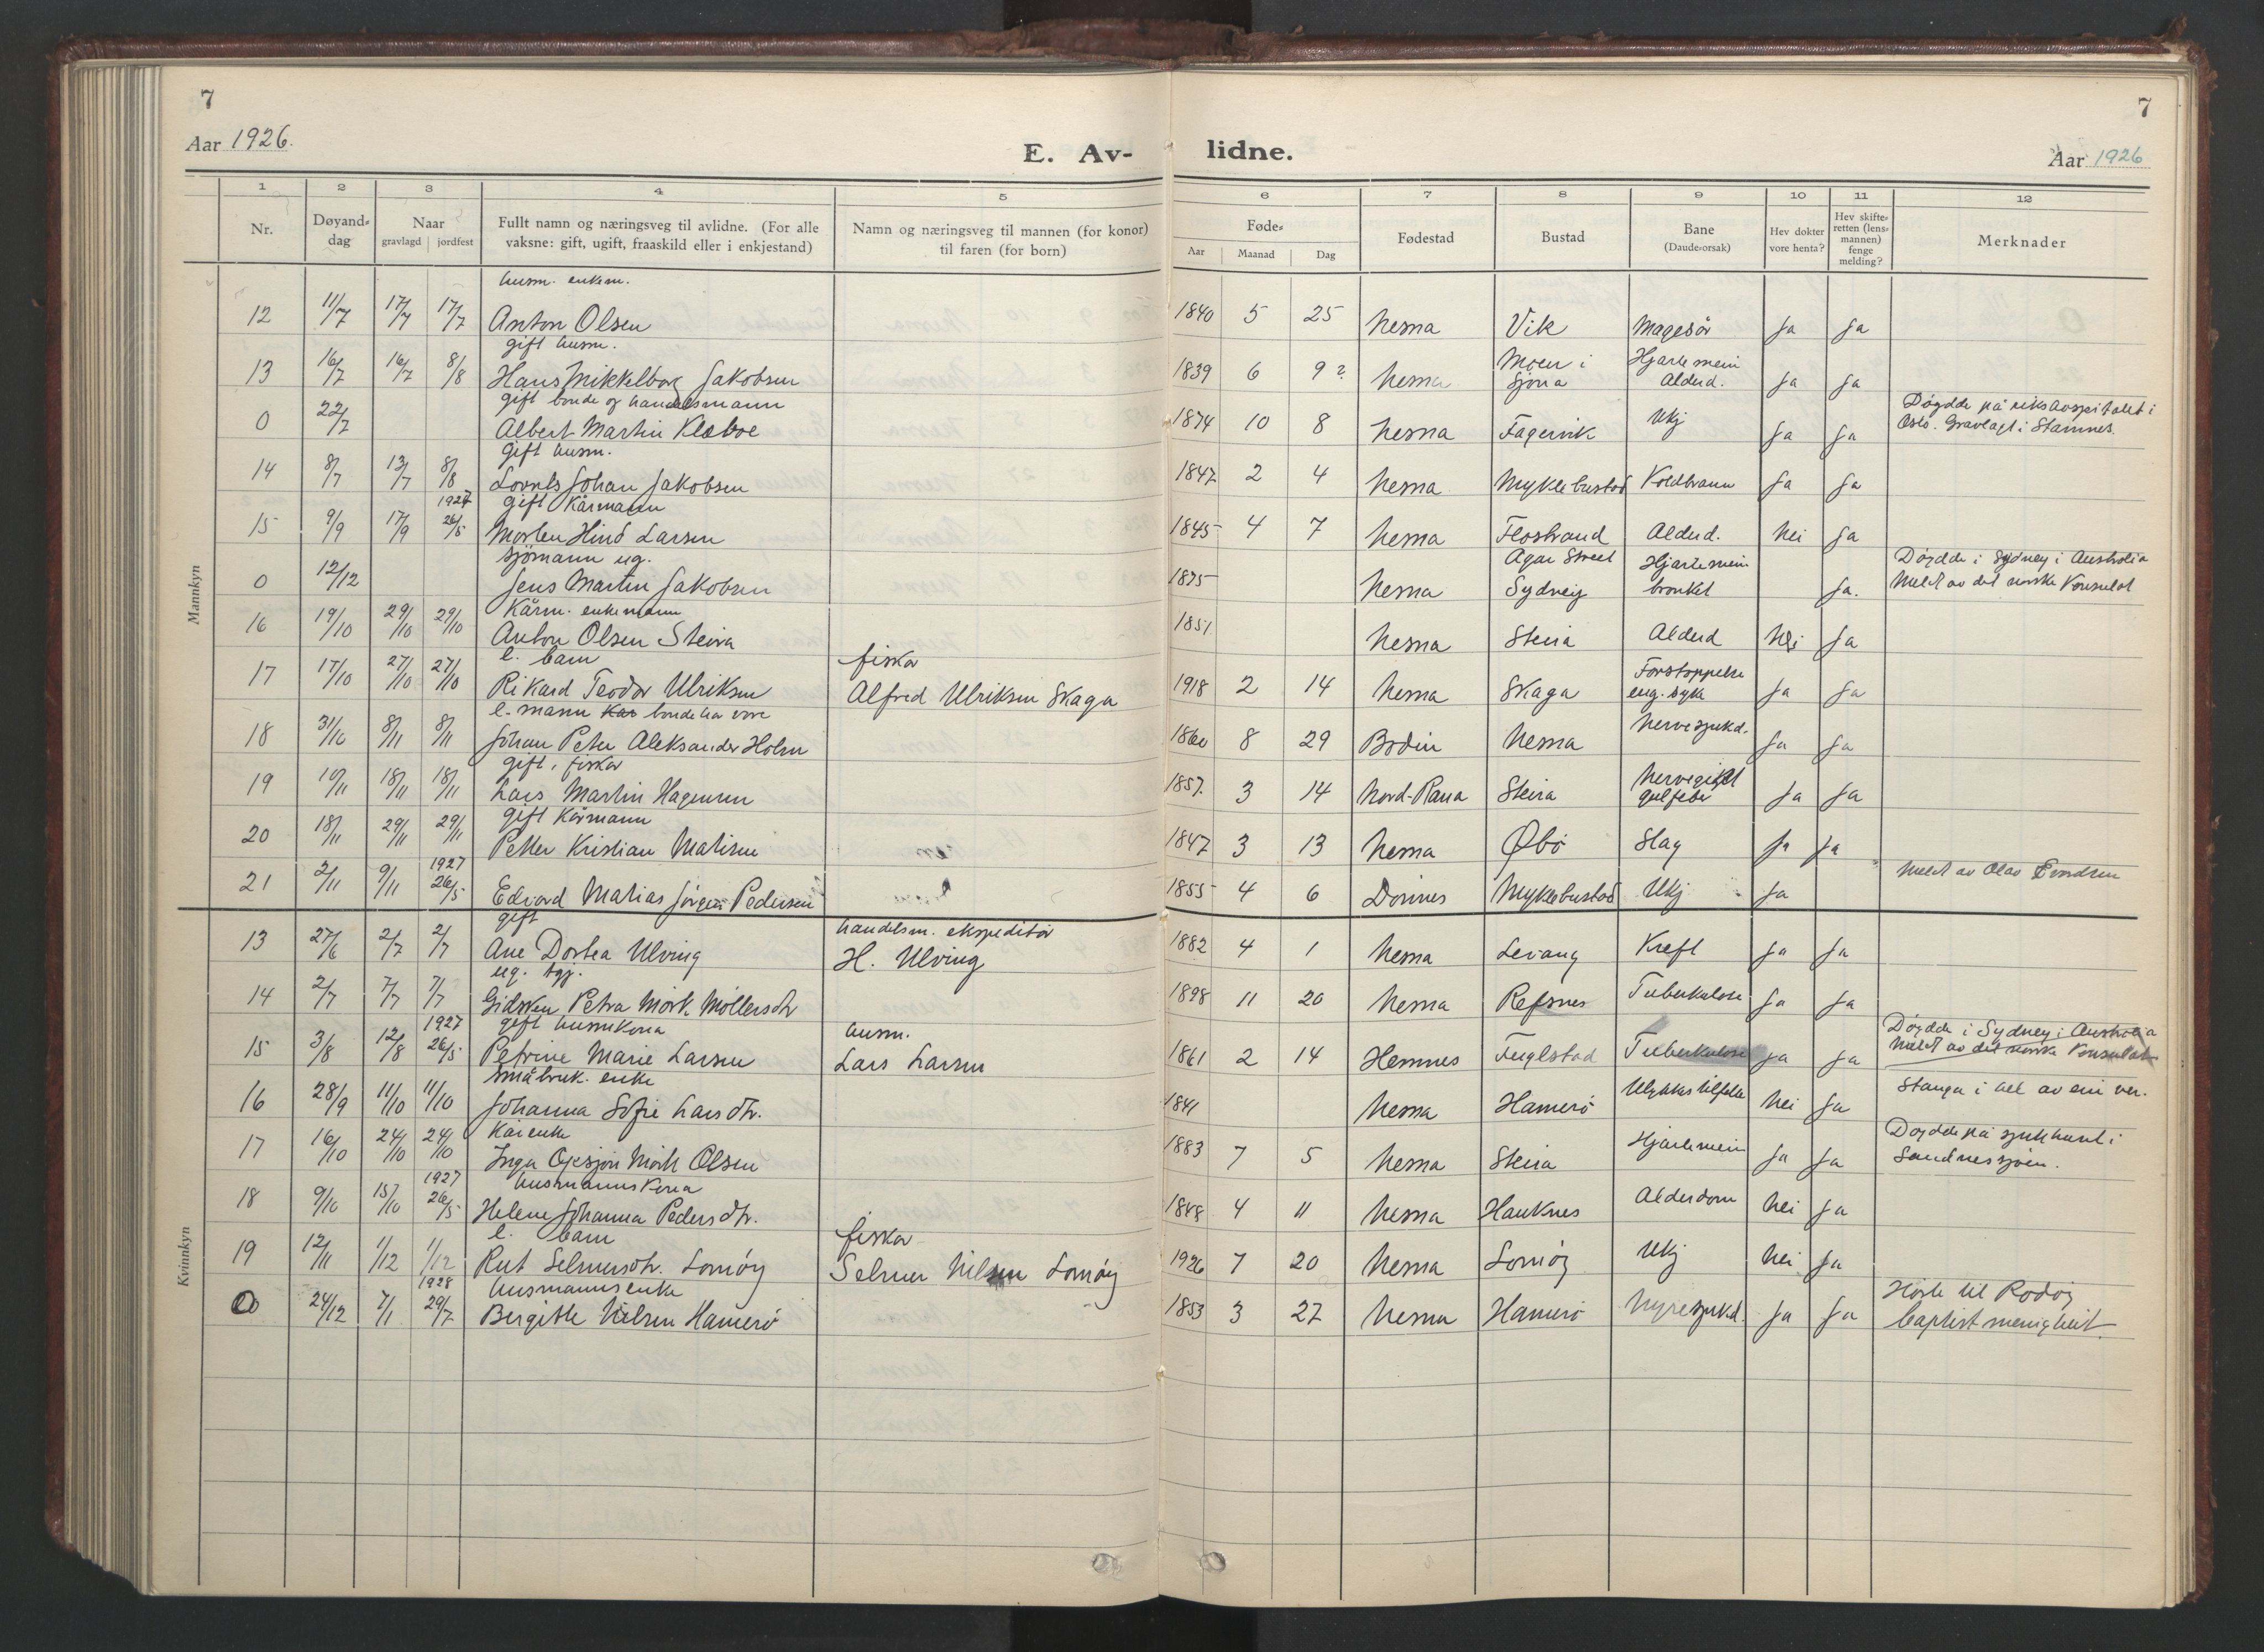 7
7
Aar 1926.
E. Av-
lidne.
Aar 1926
1 2 3 4 5 6 7 8 9 10 11 12
Nr.
Døyand-
dag
Naar
gravlagd | jordfest
Fullt namn og næringsveg til avlidne. (For alle
vaksne: gift, ugift, fraaskild eller i enkjestand)
Namn og næringsveg til mannen (for konor)
til faren (for born)
Føde-
Aar Maanad Dag
Fødestad
Bustad
Bane
(Daude-orsak)
Hev dokter
vore henta?
Hev skifte-
retten (lens-
mannen)
fenge
melding?
Merknader
Mannkyn
husm. enkem.
12 11/7 17/7 17/7 Anton Olsen 1840 5 25 Nesna Vik Magesår Ja Ja
gift husm.
13 16/7 16/7 8/8 Hans Mikkelborg Jakobsen 1839 6 9? Nesna Moen i Sjona Hjartemein Alderd. Ja Ja
gift bonde og handelsmann
0 22/7 Albert Martin Klæboe 1874 10 8 Nesna Fagervik Ukj Ja Ja Døydde på rikshospitalet i
Oslo. Gravlagt i Stamnes.
gift husm.
14 8/7 13/7 8/8 Lorents Johan Jakobsen 1847 2 4 Nesna Myklebustad Koldbrann Ja Ja
1927 gift Kårmann
15 9/9 17/9 26/5 Morten Hind Larsen 1845 4 7 Nesna Flostrand Alderd. Nei Ja
sjømann ug.
0 12/12 Jens Martin Jakobsen 1875 Nesna Agar Street Sydney Hjartemein bronkit Ja. Døydde i Sydney i Australia
Meldt av det norske Konsulat
Kårm. enkemann
16 19/10 29/10 29/10 Anton Olsen Steira 1851 Nesna Steira Alderd Nei Ja
e. barn fiskar
17 17/10 27/10 27/10 Rikard Teodor Ulriksen Alfred Ulriksen Skaga 1918 2 14 Nesna Skaga Forstoppelse eng. syke Ja Ja
e. mann Kar bonde har vore
18 31/10 8/11 8/11 Johan Peter Aleksander Holm 1860 8 29 Bodin Nesna Nervesjukd. Ja Ja
gift, fiskar
19 10/11 18/11 18/11 Lars Martin Hagensen 1857. 3 14 Nord-Rana Steira Nervegikt gulfeber Ja Ja
gift Kårmann
20 18/11 29/11 29/11 Petter Kristian Matisen 1847 3 13 Nesna Øbø Slag Ja Ja
1927
21 2/11 9/11 26/5 Edvard Matias Jørgen Pedersen 1855 4 6 Dønnes Myklebustad Ukj Ja Meldt av Olav Evndsen
Kvinnkyn
gift handelsm. ekspeditør
13 27/6 2/7 2/7 Ane Dortea Ulving H. Ulving 1882 4 1 Nesna Levang Kreft Ja Ja
ug. tgj.
14 2/7 7/7 7/7 Gidsken Petra Mørk Møllersdtr 1898 11 20 Nesna Refsnes Tuberkulose Ja Ja
1927 gift husmkona husm.
15 3/8 12/8 26/5 Petrine Marie Larsen Lars Larsen 1861 2 14 Hemnes Fuglstad Tuberkulose Ja Ja Døydde i Sydney i Australia
Meldt av det norske Konsulat
småbruk. enke
16 28/9 11/10 11/10 Johanna Sofie Larsdtr. 1841 Nesna Hamerø Ulykkestilfelle Nei Ja Stanga i hel av ein ver.
Kårenke
17 16/10 24/10 24/10 Inga Mörk Olsen 1883 7 5 Nesna Steira Hjartemein Ja Ja Døydde på sjukehuset i
Sandnessjøen.
1927 husmannskona
18 9/10 15/10 26/5 Helene Johanna Pedersdtr. 1848 4 11 Nesna Hauknes Alderdom Nei Ja
e. barn fiskar
19 12/11 1/12 1/12 Rut Selmersdtr. Lomøy Selmer Nilsen Lomøy 1926 7 20 Nesna Lomøy Ukj Nei Ja
1928 husmannsenke
0 24/12 7/1 29/7 Bergitte Nilsen Hamerø 1853 3 27 Nesna Hamerø Nyresjukd. Ja Ja Høyrde til Rødøy
baptistmenighet